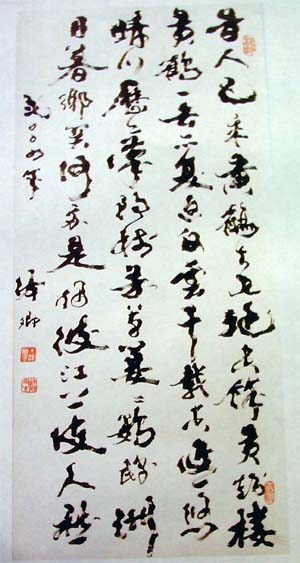 昔人已乘黃鶴去此地空餘黃鶴樓
黃鶴一去不復返白雲千載空悠悠
晴川歷歷漢陽樹芳草萋萋鸚鵡洲
日暮鄉關何處是煙波江上使人愁
年
卿